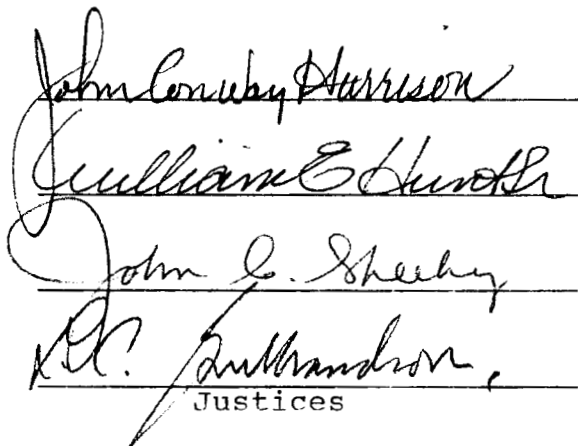 John Conway Harrison
William E Hunt Sr
John C. Sheehy
L.C. Gulbrandson,
Justices